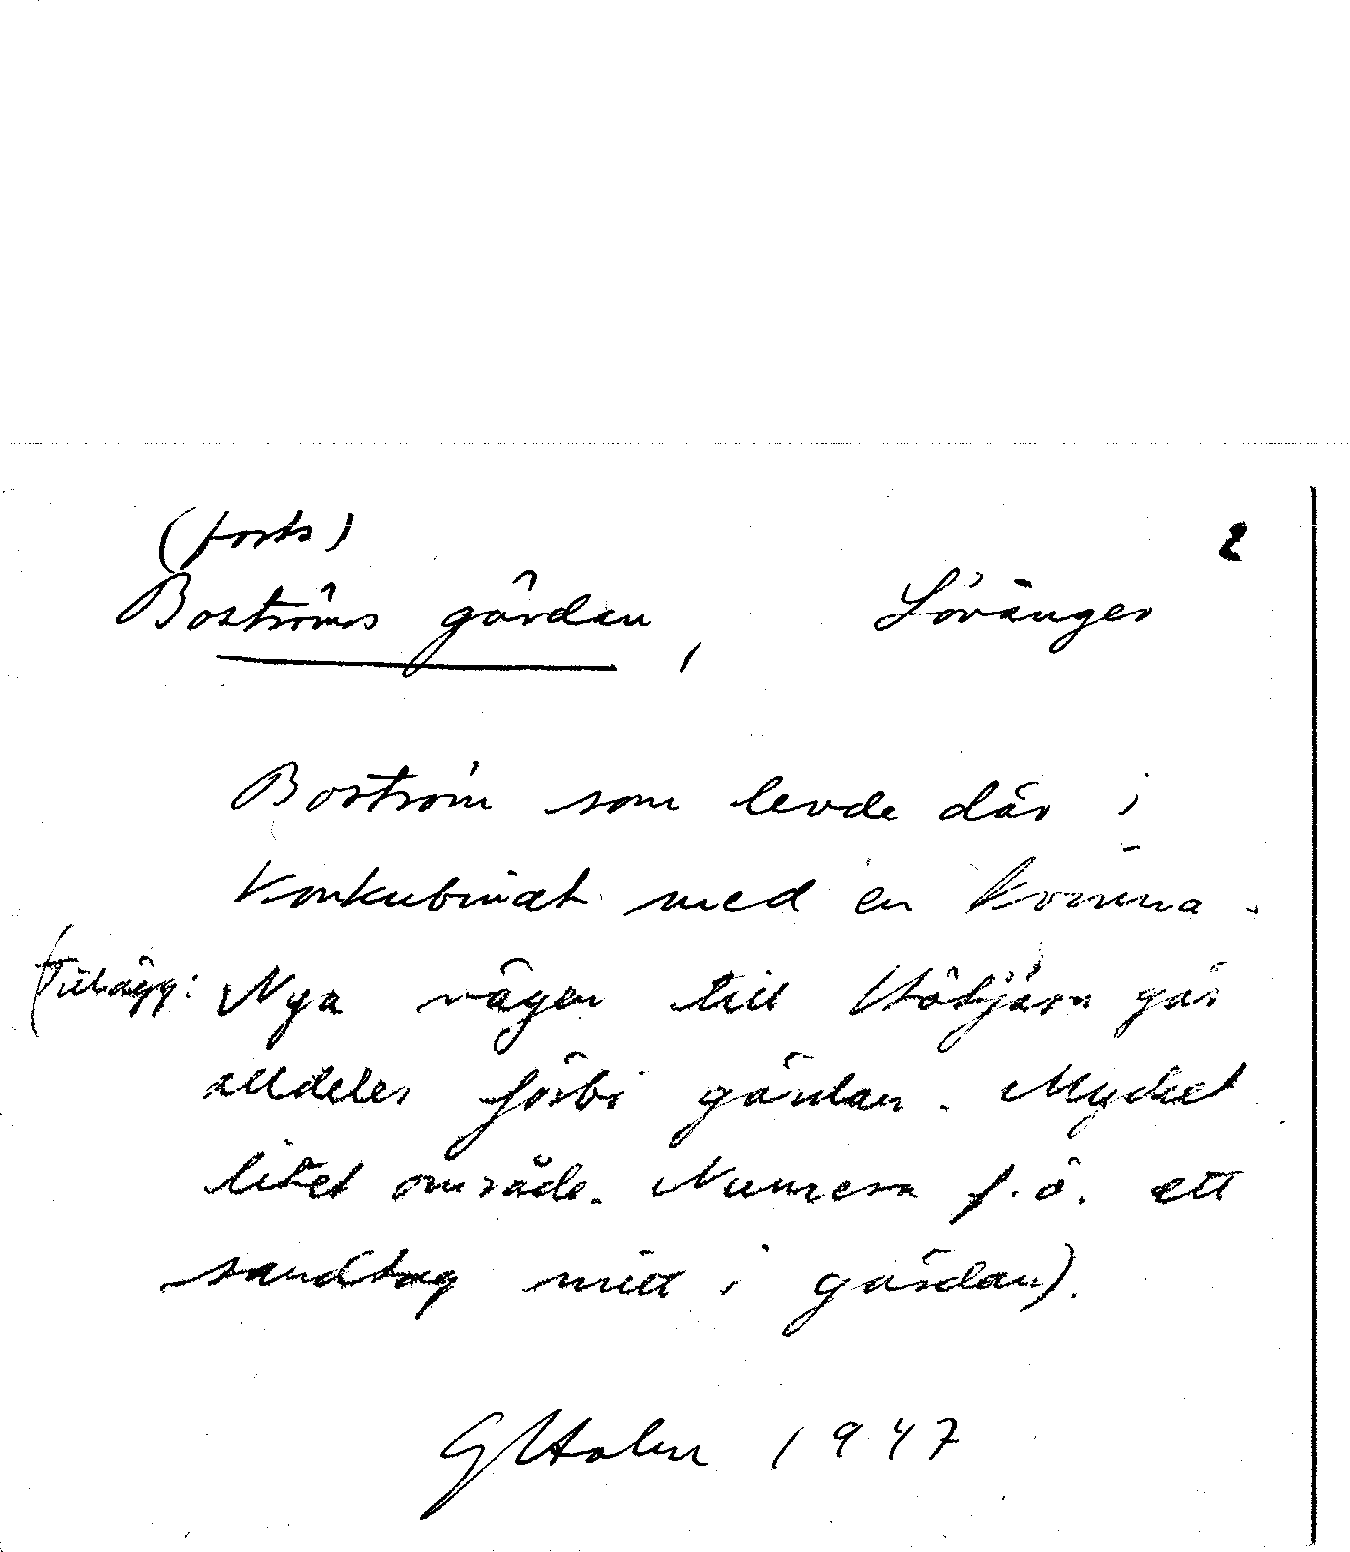 (forts)
2
Boströms gärdan, Lövånger
Boström som levde där i
konkubinat med en kvinna.
(Tillägg: Nya vägen till Hötjärn går
alldeles förbi gärdan. Mycket
litet område. Numera f.ö. ett
sandtag mitt i gärdan).
GHolm 1947